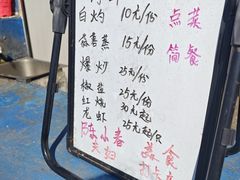 白灼 10元/份 点菜
蒜蓉蒸 15元/份 简餐
爆炒 25元/份
椒盐 25元/份
红烧 30元起
龙虾 25元起/只
陈小春 美食
夫妇